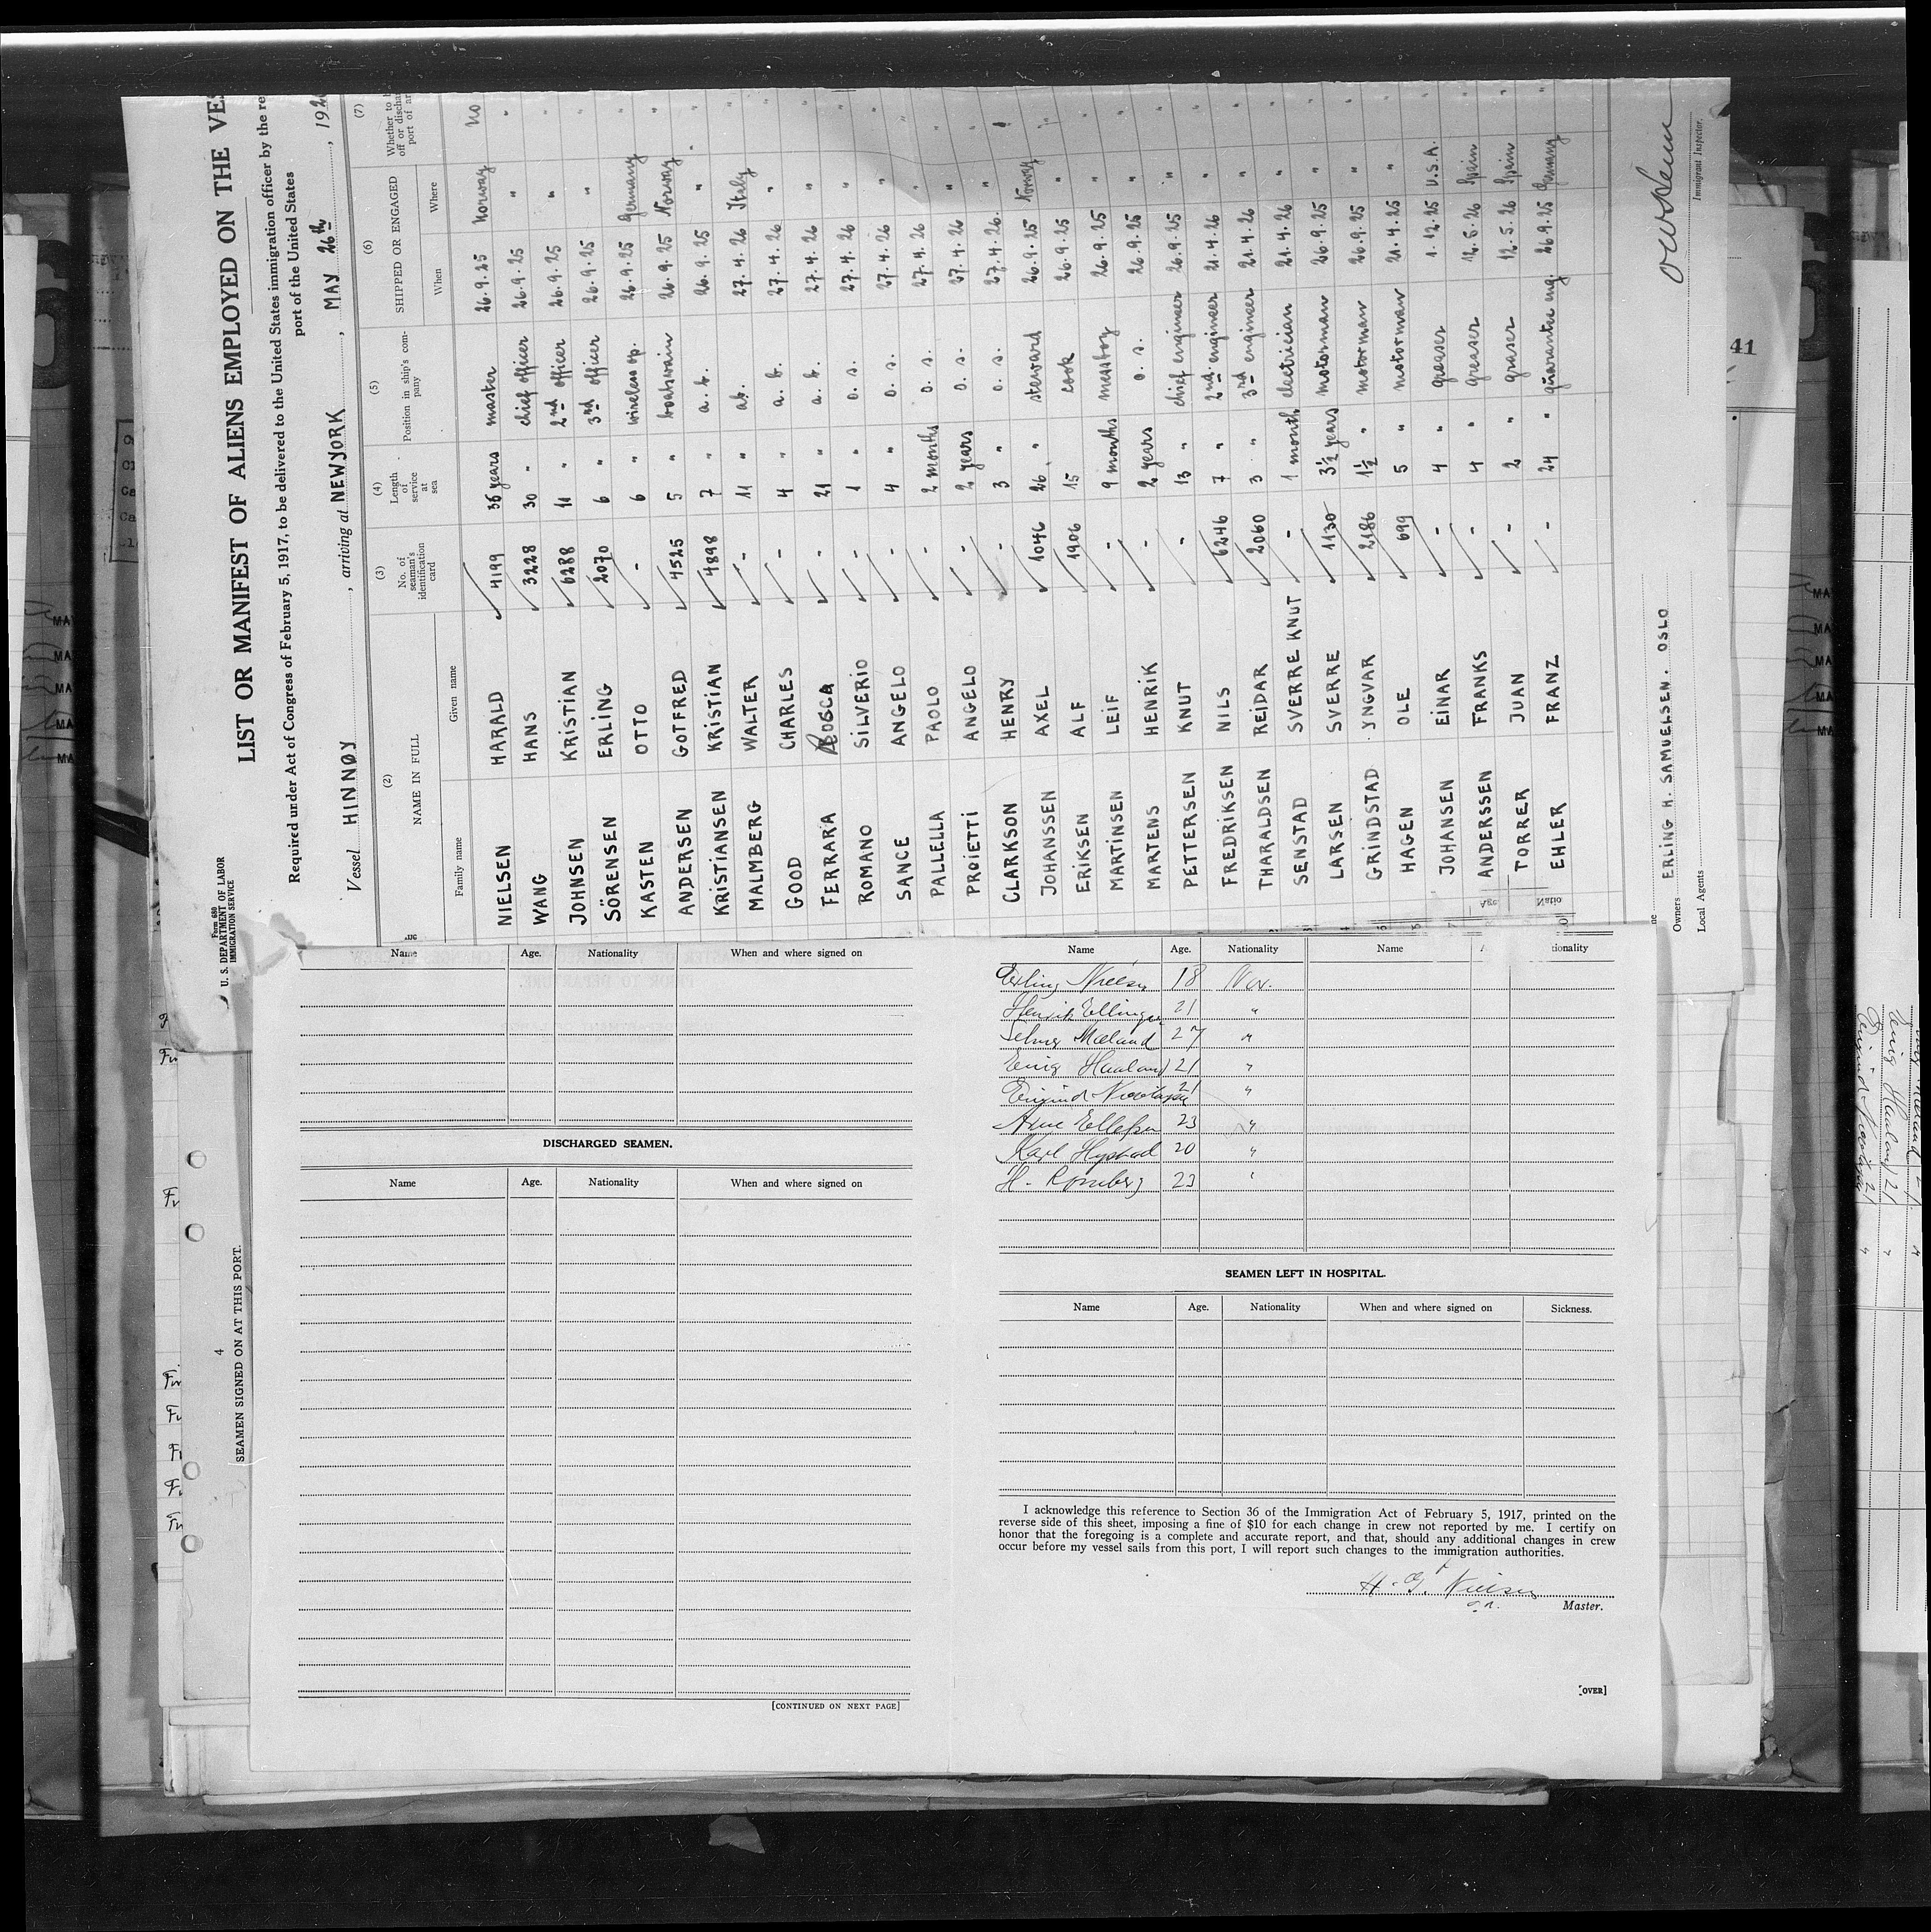 Form 680
U. S. DEPARTMENT OF LABOR
IMMIGRATION SERVICE
LIST OR MANIFEST OF ALIENS EMPLOYED ON THE VES
Required under Act of Congress of February 5, 1917, to be delivered to the United States immigration officer by the re
port of the United States
Vessel HINNØY, arriving at NEW YORK, MAY 26th, 192
(2) (3) (4) (5) (6) (7)
NAME IN FULL No. of seaman's identification card Length of service at sea Position in ship's company SHIPPED OR ENGAGED Whether to
off or discha
port of ar
Family name Given name When Where
NIELSEN HARALD 4199 36 years master 26.9.25 Norway no
WANG HANS 3228 30 " chief officer 26.9.25 " "
JOHNSEN KRISTIAN 6288 11 " 2nd officer 26.9.25 " "
SÖRENSEN ERLING 2070 6 " 3rd officer 26.9.25 " "
KASTEN OTTO - 6 " wireless op. 26.9.25 Germany "
ANDERSEN GOTFRED 4525 5 " boatswain 26.9.25 Norway "
KRISTIANSEN KRISTIAN 4898 7 " a. b. 26.9.25 " "
MALMBERG WALTER - 11 " ab. 27.4.26 Italy "
GOOD CHARLES - 4 " a. b. 27.4.26 " "
FERRARA BOSCA - 21 " a. b. 27.4.26 " "
ROMANO SILVERIO - 1 " o. s. 27.4.26 " "
SANCE ANGELO - 4 " o. s. 27.4.26 " "
PALLELLA PAOLO - 2 months o. s. 27.4.26 " "
PROIETTI ANGELO - 2 years o. s. 27.4.26 " "
CLARKSON HENRY - 3 " o. s. 27.4.26. " "
JOHANSSEN AXEL 1046 26 " steward 26.9.25 Norway "
ERIKSEN ALF 1906 15 cook 26.9.25 " "
MARTINSEN LEIF - 9 months messboy 26.9.25 " "
MARTENS HENRIK - 2 years o. s. 26.9.25 " "
PETTERSEN KNUT - 13 " chief engineer 26.9.25 " "
FREDRIKSEN NILS 6246 7 " 2nd engineer 21.4.26 " "
THARALDSEN REIDAR 2060 3 " 3rd engineer 21.4.26 " "
SENSTAD SVERRE KNUT - 1 month electrician 21.4.26 " "
LARSEN SVERRE 1130 3½ years motorman 26.9.25 " "
GRINDSTAD YNGVAR 2186 1½ " motorman 26.9.25 " "
HAGEN OLE 699 5 " motorman 21.4.25 " "
JOHANSEN EINAR - 4 " greaser 1.12.25 U.S.A. "
ANDERSSEN FRANKS - 4 " greaser 12.5.26 Spain "
TORRER JUAN - 2 " graser 12.5.26 Spain "
EHLER FRANZ - 24 " guarantee eng. 26.9.25 Germany "
Owners ERLING H. SAMUELSEN. OSLO
Local Agents
Immigrant Inspector.
41
4
SEAMEN SIGNED ON AT THIS PORT.
Name Age. Nationality When and where signed on
DISCHARGED SEAMEN.
Name Age. Nationality When and where signed on
[CONTINUED ON NEXT PAGE]
Name Age. Nationality Name tionality
Erling Nielsen 18 Nor.
Henrik Ellingsen 21 "
Mæland 27 "
Haaland 21 "
21 "
Arne Ellefsen 23 "
Karl Hystad 20 "
H. 23 "
SEAMEN LEFT IN HOSPITAL.
Name Age. Nationality When and where signed on Sickness.
I acknowledge this reference to Section 36 of the Immigration Act of February 5, 1917, printed on the
reverse side of this sheet, imposing a fine of $10 for each change in crew not reported by me. I certify on
honor that the foregoing is a complete and accurate report, and that, should any additional changes in crew
occur before my vessel sails from this port, I will report such changes to the immigration authorities.
H. G. Nielsen
Master.
[OVER]